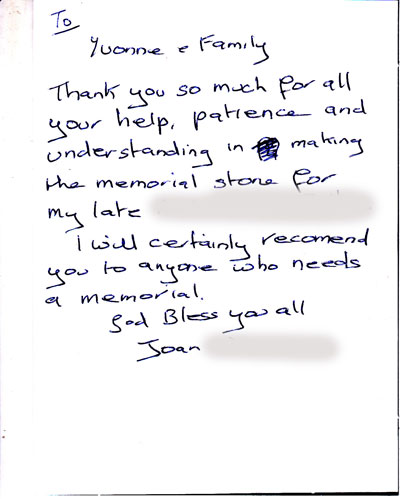 To
Yvonne & Family
Thank you so much for all
your help, patience and
understanding in making
the memorial stone for
my late
I will certainly recomend
you to anyone who needs
a memorial.
God Bless you all
Joan